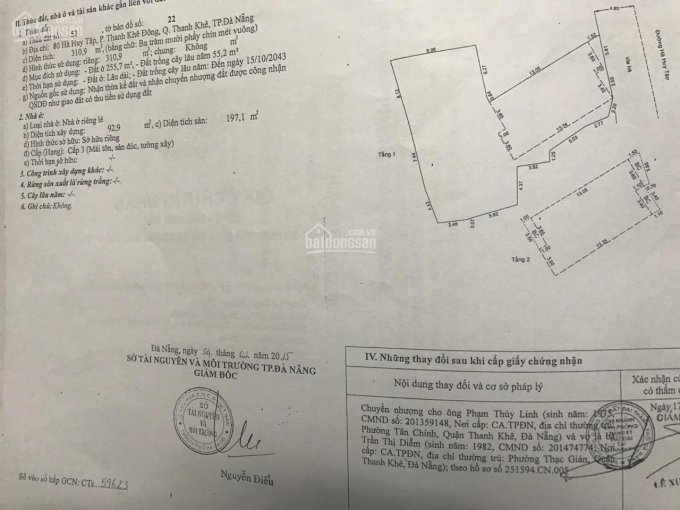 II. Thửa đất, nhà ở và tài sản khác gắn liền với đất
1. Thửa đất:
a) Thửa đất số: 53, tờ bản đồ số: 22
b) Địa chỉ: 80 Hà Huy Tập, P. Thanh Khê Đông, Q. Thanh Khê, TP.Đà Nẵng
c) Diện tích: 310,9 m², (bằng chữ: Ba trăm mười phẩy chín mét vuông)
d) Hình thức sử dụng: riêng: 310,9 m², chung: Không m²
đ) Mục đích sử dụng: - Đất ở 255,7 m², - Đất trồng cây lâu năm 55,2 m²
e) Thời hạn sử dụng: - Đất ở: Lâu dài; - Đất trồng cây lâu năm: Đến ngày 15/10/2043
g) Nguồn gốc sử dụng: Nhận thừa kế đất và nhận chuyển nhượng đất được công nhận
QSDĐ như giao đất có thu tiền sử dụng đất
2. Nhà ở:
a) Loại nhà ở: Nhà ở riêng lẻ
b) Diện tích xây dựng: 92,9 m², c) Diện tích sàn: 197,1 m²
d) Hình thức sở hữu: Sở hữu riêng
đ) Cấp (Hạng): Cấp 3 (Mái tôn, sàn đúc, tường xây)
e) Thời hạn sở hữu: -/-
3. Công trình xây dựng khác: -/-
4. Rừng sản xuất là rừng trồng: -/-
5. Cây lâu năm: -/-
6. Ghi chú: Không.
Tầng 1
Tầng 2
Đường Hà Huy Tập
Vỉa hè
8.99
9.12
6.77
13.05
13.36
4.80
2.77
5.03
3.82
3.48
13.05
13.36
batdongsan
.com.vn
Đà Nẵng, ngày tháng năm 2015
SỞ TÀI NGUYÊN VÀ MÔI TRƯỜNG TP.ĐÀ NẴNG
GIÁM ĐỐC
SỞ
TÀI NGUYÊN
VÀ
MÔI TRƯỜNG
Nguyễn Điểu
Số vào sổ cấp GCN: CTs 59623
IV. Những thay đổi sau khi cấp giấy chứng nhận
Nội dung thay đổi và cơ sở pháp lý
Xác nhận củ
có thẩm
Chuyển nhượng cho ông Phạm Thùy Linh (sinh năm: 1975,
CMND số: 201359148, Nơi cấp: CA.TPĐN, địa chỉ thường
Phường Tân Chính, Quận Thanh Khê, Đà Nẵng) và vợ là bà
Trần Thị Diễm (sinh năm: 1982, CMND số: 201474774, Nơi
cấp: CA.TPĐN, địa chỉ thường trú: Phường Thạc Gián, Quận
Thanh Khê, Đà Nẵng); theo hồ sơ 251594.CN.005
GIÁM
LÊ XU